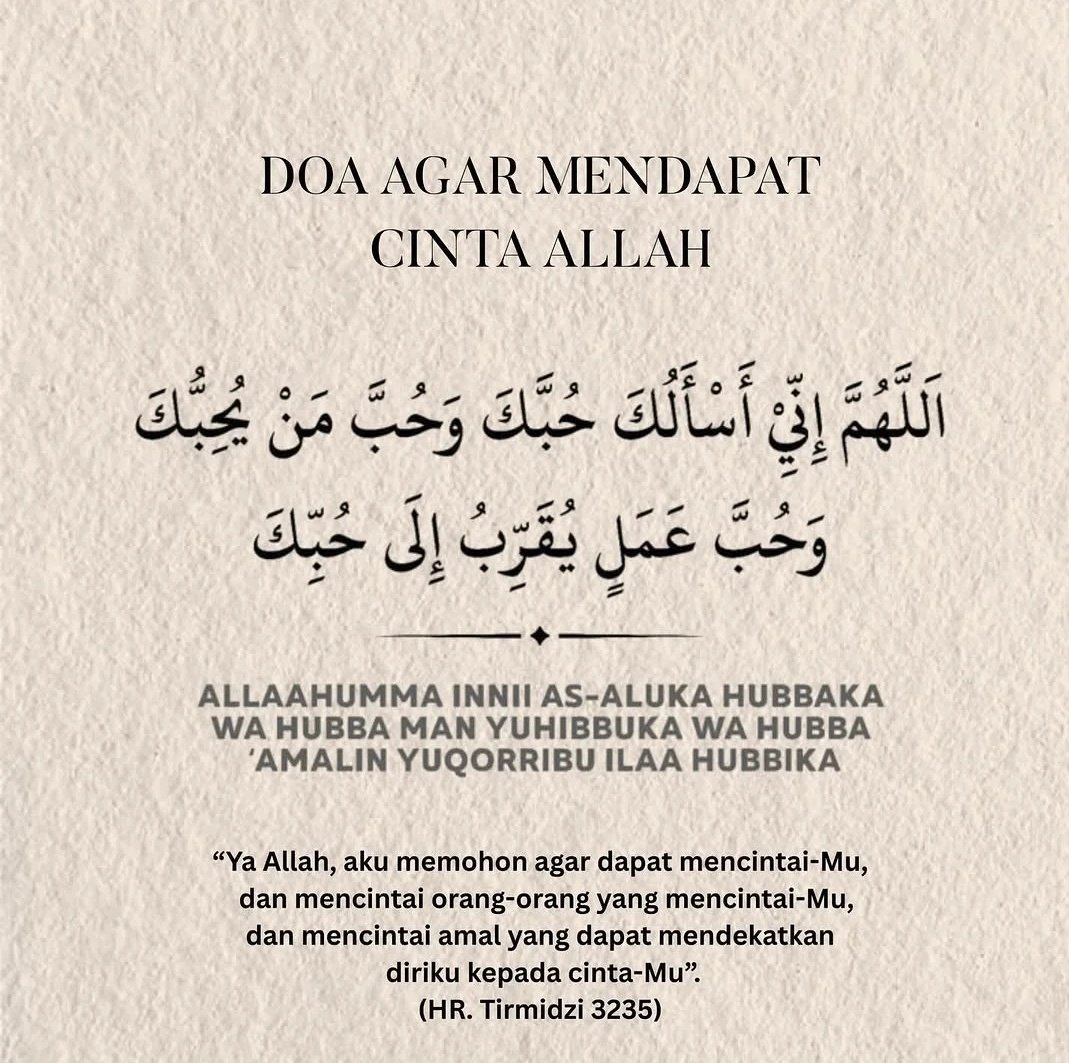 DOA AGAR MENDAPAT
CINTA ALLAH
اَللَّهُمَّ إِنِّيْ أَسْأَلُكَ حُبَّكَ وَحُبَّ مَنْ يُحِبُّكَ
وَحُبَّ عَمَلٍ يُقَرِّبُ إِلَى حُبِّكَ
ALLAAHUMMA INNII AS-ALUKA HUBBAKA
WA HUBBA MAN YUHIBBUKA WA HUBBA
'AMALIN YUQORRIBU ILAA HUBBIKA
“Ya Allah, aku memohon agar dapat mencintai-Mu,
dan mencintai orang-orang yang mencintai-Mu,
dan mencintai amal yang dapat mendekatkan
diriku kepada cinta-Mu”.
(HR. Tirmidzi 3235)